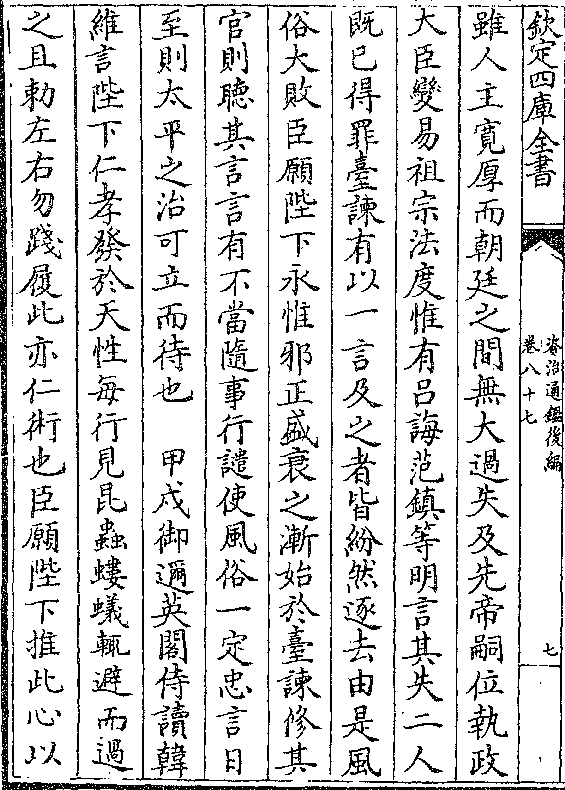 欽定四庫全書
資治通鑑後編
卷八十七
七
雖人主寛厚而朝廷之間無大過失及先帝嗣位執政
大臣變易祖宗法度惟有吕誨范鎮等明言其失二人
既已得罪臺諫有以一言及之者皆紛然逐去由是風
俗大敗臣願陛下永惟邪正盛衰之漸始於臺諫修其
官則聽其言言有不當隨事行譴使風俗一定忠言日
至則太平之治可立而待也　甲戌御邇英閣侍讀韓
維言陛下仁孝發於天性每行見昆蟲螻蟻輒避而過
之且勅左右勿踐履此亦仁術也臣願陛下推此心以